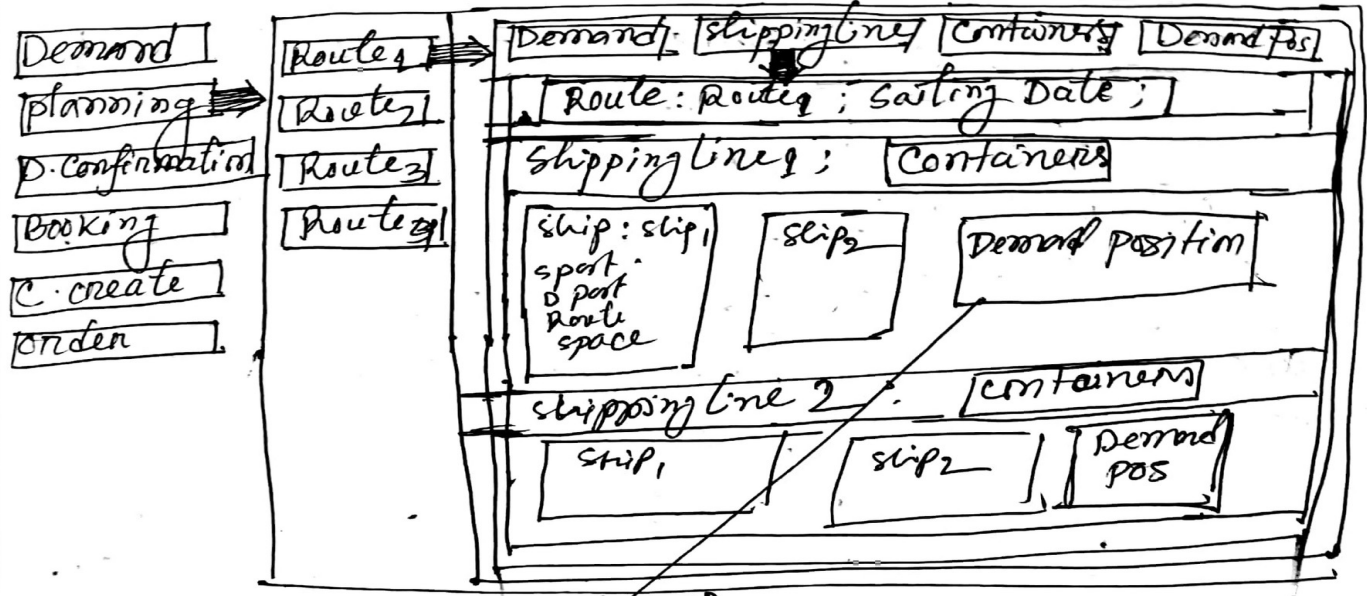 Demand
planning
D. Confirmation
Booking
C. create
order
Route1
Route2
Route3
Route4
Demand
Shipping line
Containers
Demand Pos
Route : Route1 ; Sailing Date ;
Shipping line1 ;
Containers
Ship : Ship1
S port
D port
Route
space
Ship2
Demand position
Shipping line 2
Containers
Ship1
Ship2
Demand
pos